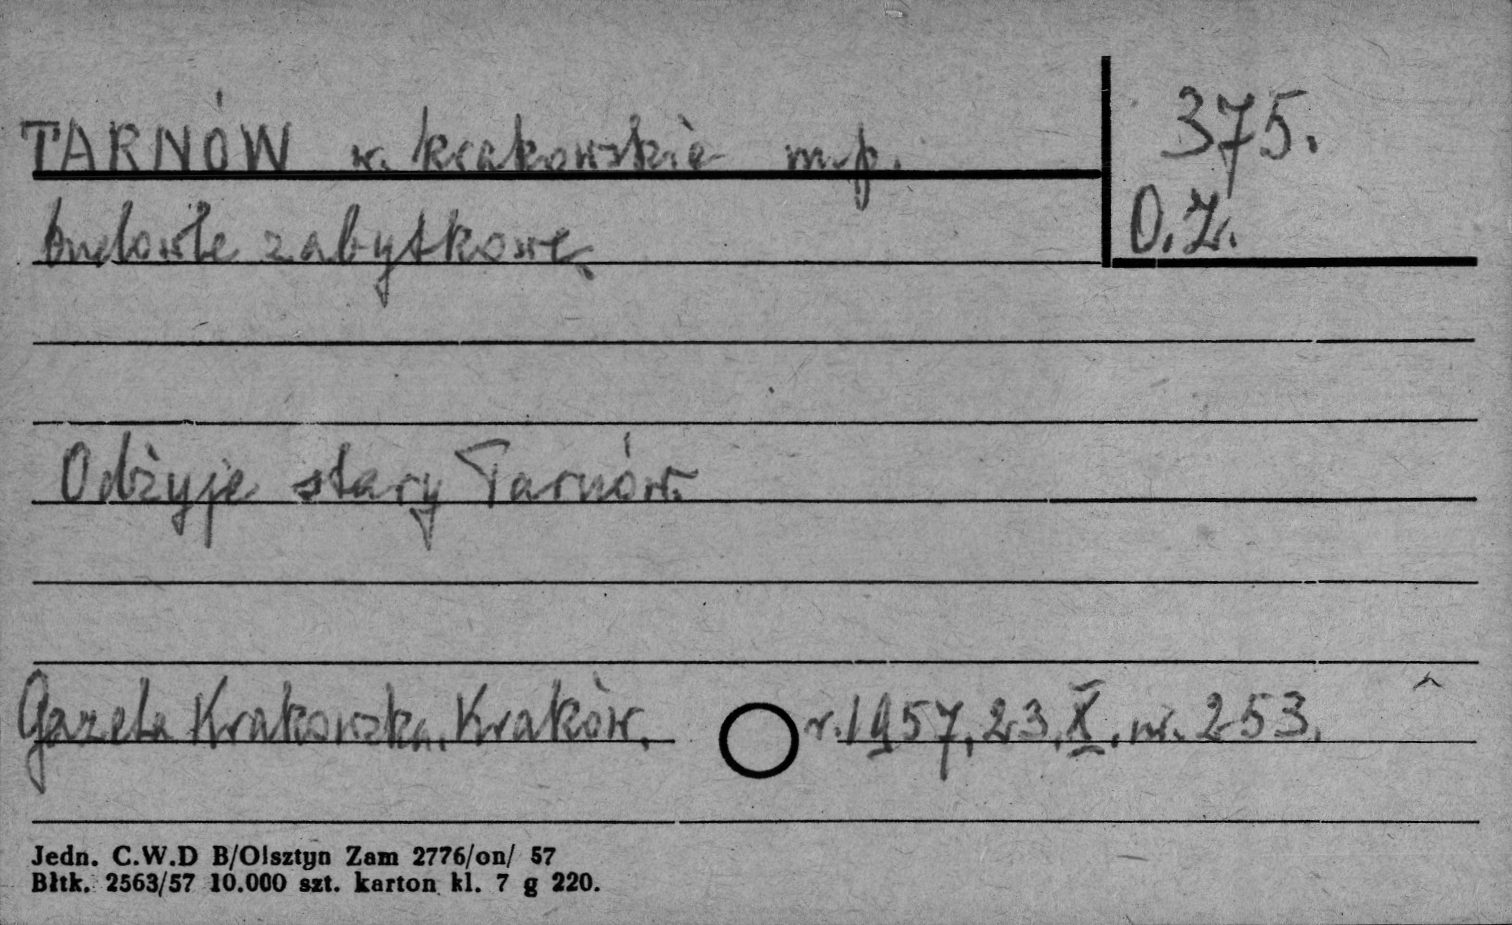 TARNÓW w. krakowskie m.p.
375.
budowle zabytkowe
O.Z.
Odżyje stary Tarnów.
Gazeta Krakowska, Kraków. r. 1957, 23. X. nr. 253.
Jedn. C.W.D B/Olsztyn Zam 2776/on/ 57
Bltk. 2563/57 10.000 szt. karton kl. 7 g 220.